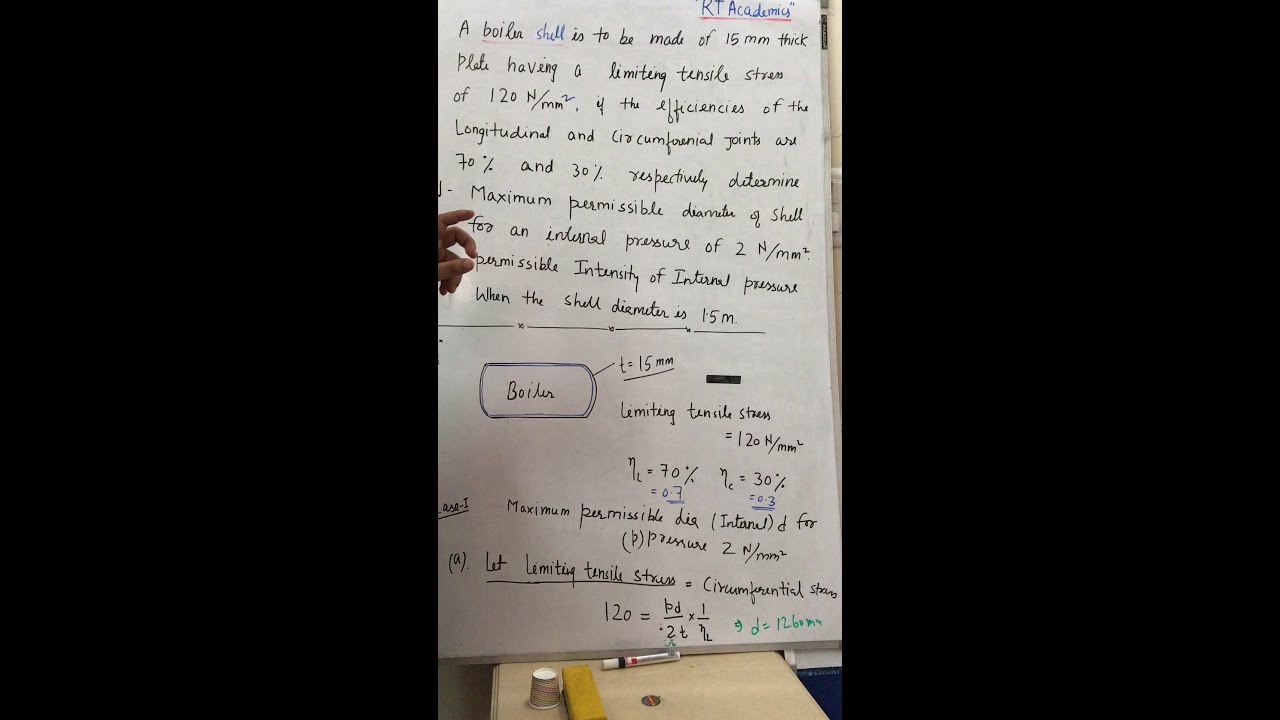 "RT Academics"
A boiler shell is to be made of 15 mm thick
plate having a limiting tensile stress
of 120 N/mm², if the efficiencies of the
Longitudinal and Circumferenial Joints are
70% and 30% respectively determine
Maximum permissible diameter of shell
for an internal pressure of 2 N/mm².
permissible Intensity of Internal pressure
When the shell diameter is 1.5m.
t = 15 mm
Boiler
Limiting tensile stress
= 120 N/mm²
η_L = 70% η_c = 30%
= 0.7 = 0.3
ase-I Maximum permissible dia (Internal) d for
(p) pressure 2 N/mm²
(a). Let Limiting tensile stress = Circumferential stress
120 = pd/2t × 1/η_L ⇒ d = 1260mm